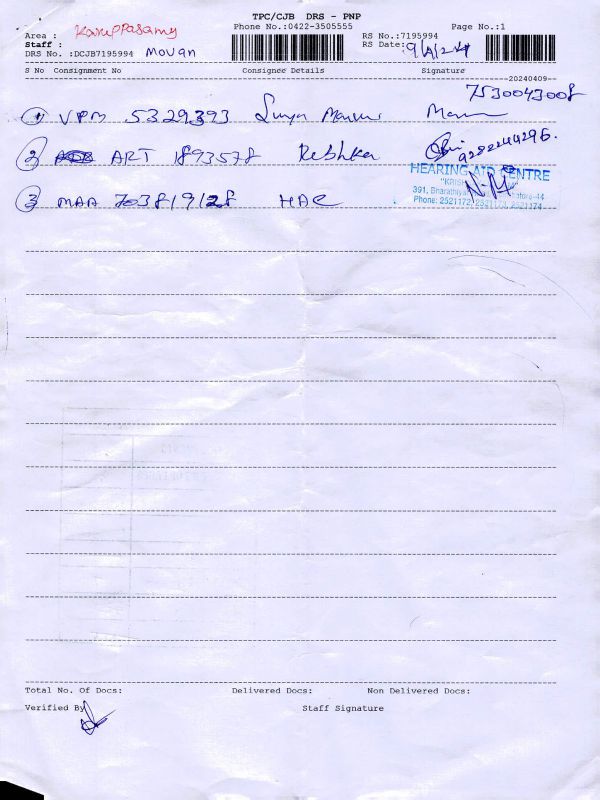 TPC/CJB DRS - PNP
Phone No.:0422-3505555 Page No.:1
Area : Karuppasamy RS No.:7195994
Staff : RS Date:9/4/24
DRS No. :DCJB7195994 Movan
S No Consignment No Consignee Details Signature
20240409
7530043008
1 VPM 5329393 Surya
2 ART 1893578 9282244296.
HEARING AID CENTRE
3 MAA 703819128 HAC
391, Bharathiy
Phone: 2521172, 2521173, 2521174
Total No. Of Docs: Delivered Docs: Non Delivered Docs:
Verified By Staff Signature